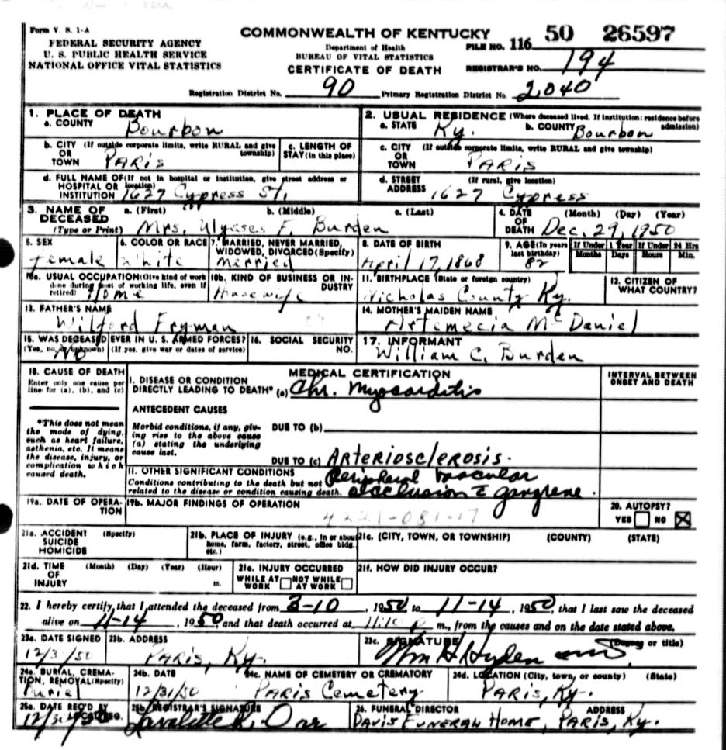 Form V. S. 1-A
FEDERAL SECURITY AGENCY
U. S. PUBLIC HEALTH SERVICE
NATIONAL OFFICE VITAL STATISTICS
COMMONWEALTH OF KENTUCKY
Department of Health
BUREAU OF VITAL STATISTICS
CERTIFICATE OF DEATH
FILE NO. 116 50 26597
REGISTRAR'S NO. 194
Registration District No. 90 Primary Registration District No. 2040
1. PLACE OF DEATH
a. COUNTY Bourbon
2. USUAL RESIDENCE (Where deceased lived. If institution: residence before admission)
a. STATE Ky. b. COUNTY Bourbon
b. CITY (If outside corporate limits, write RURAL and give township) OR TOWN PARIS
c. LENGTH OF STAY (in this place)
c. CITY (If outside corporate limits, write RURAL and give township) OR TOWN PARIS
d. FULL NAME OF (If not in hospital or institution, give street address or location) HOSPITAL OR INSTITUTION 1627 Cypress St.
d. STREET ADDRESS (If rural, give location) 1627 Cypress
3. NAME OF DECEASED (Type or Print) a. (First) b. (Middle) c. (Last)
Mrs. Ulysses F. Burden
4. DATE OF DEATH (Month) (Day) (Year)
Dec. 29, 1950
5. SEX female
6. COLOR OR RACE White
7. MARRIED, NEVER MARRIED, WIDOWED, DIVORCED (Specify) Married
8. DATE OF BIRTH April 17, 1868
9. AGE (In years last birthday) 82
If Under 1 Year Months Days
If Under 24 Hrs Hours Min.
10a. USUAL OCCUPATION (Give kind of work done during most of working life, even if retired) Home
10b. KIND OF BUSINESS OR INDUSTRY Housewife
11. BIRTHPLACE (State or foreign country) Nicholas County Ky.
12. CITIZEN OF WHAT COUNTRY?
13. FATHER'S NAME
Wilford Fryman
14. MOTHER'S MAIDEN NAME
Artemecia McDaniel
15. WAS DECEASED EVER IN U. S. ARMED FORCES? (Yes, no, or unknown) (If yes, give war or dates of service) No
16. SOCIAL SECURITY NO.
17. INFORMANT
William C. Burden
18. CAUSE OF DEATH
Enter only one cause per line for (a), (b), and (c)
*This does not mean the mode of dying, such as heart failure, asthenia, etc. It means the disease, injury, or complication which caused death.
MEDICAL CERTIFICATION
INTERVAL BETWEEN ONSET AND DEATH
I. DISEASE OR CONDITION DIRECTLY LEADING TO DEATH* (a) Chr. Myocarditis
ANTECEDENT CAUSES
Morbid conditions, if any, giving rise to the above cause (a) stating the underlying cause last.
DUE TO (b)
DUE TO (c) Arteriosclerosis.
II. OTHER SIGNIFICANT CONDITIONS
Conditions contributing to the death but not related to the disease or condition causing death.
Peripheral vascular
occlusion c gangrene
19a. DATE OF OPERATION
19b. MAJOR FINDINGS OF OPERATION
20. AUTOPSY?
YES NO
21a. ACCIDENT SUICIDE HOMICIDE (Specify)
21b. PLACE OF INJURY (e.g., in or about home, farm, factory, street, office bldg. etc.)
21c. (CITY, TOWN, OR TOWNSHIP) (COUNTY) (STATE)
21d. TIME OF INJURY (Month) (Day) (Year) (Hour) m.
21e. INJURY OCCURRED
WHILE AT WORK NOT WHILE AT WORK
21f. HOW DID INJURY OCCUR?
22. I hereby certify that I attended the deceased from 3-10, 1950 to 11-14, 1950, that I last saw the deceased
alive on 11-14, 1950 and that death occurred at m., from the causes and on the date stated above.
23a. DATE SIGNED
23b. ADDRESS
Paris, Ky.
23c. SIGNATURE (Degree or title)
Wm H Hyden
24a. BURIAL, CREMATION, REMOVAL (Specify)
Burial
24b. DATE
12/31/50
24c. NAME OF CEMETERY OR CREMATORY
Paris Cemetery
24d. LOCATION (City, town, or county) (State)
Paris, Ky.
25a. DATE REC'D BY LOCAL REG.
25b. REGISTRAR'S SIGNATURE
26. FUNERAL DIRECTOR ADDRESS
Davis Funeral Home, Paris, Ky.